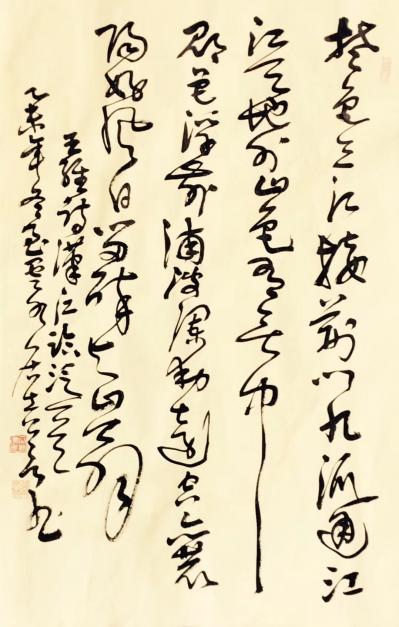 楚塞三江接荆门九派通江
流天地外山色有无中
郡邑浮前浦波澜动远空襄
阳好风日留醉与山翁
王維詩漢江臨泛一首
乙未年冬居士书